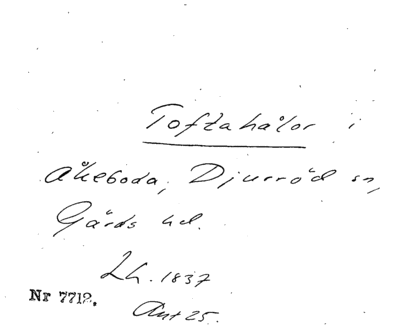 Toftahålor i
Åkeboda, Djurröd sn,
Gärds hd.
Lh. 1837
Nr 7712.
Ant 25.